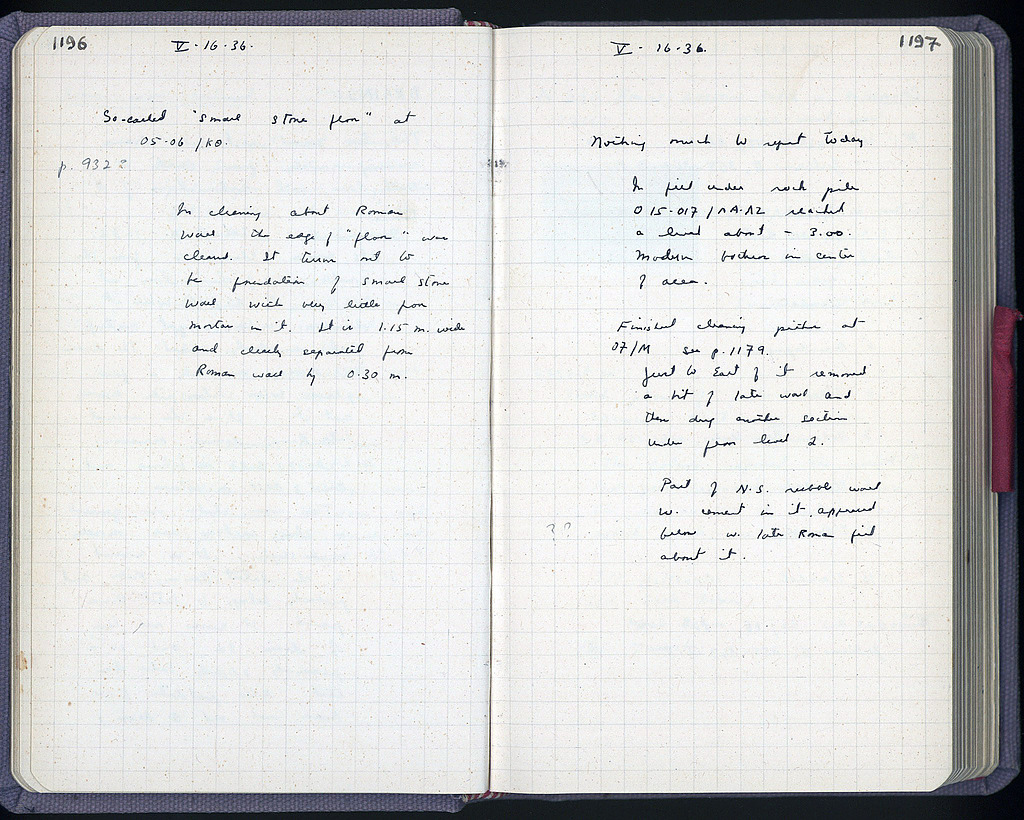 1196
V · 16 · 36.
So-called "small stone floor" at
05-06 /KO.
p. 932?
In cleaning about Roman
wall the edge of "floor" was
cleared. It turns out to
be foundation of small stone
wall with very little poor
mortar in it. It is 1.15 m. wide
and clearly separated from
Roman wall by 0.30 m.
V · 16 · 36.
1197
Nothing much to report today.
In fill under rock pile
015-017/ΛA-ΛZ reached
a level about - 3.00.
Modern bothros in center
of area.
Finished cleaning pithos at
07/M see p. 1179.
Just to East of it removed
a bit of late wall and
then dug another section
under floor level 2.
Part of N.S. rubble wall
w. cement in it appeared
below w. late Roman fill
about it.
??